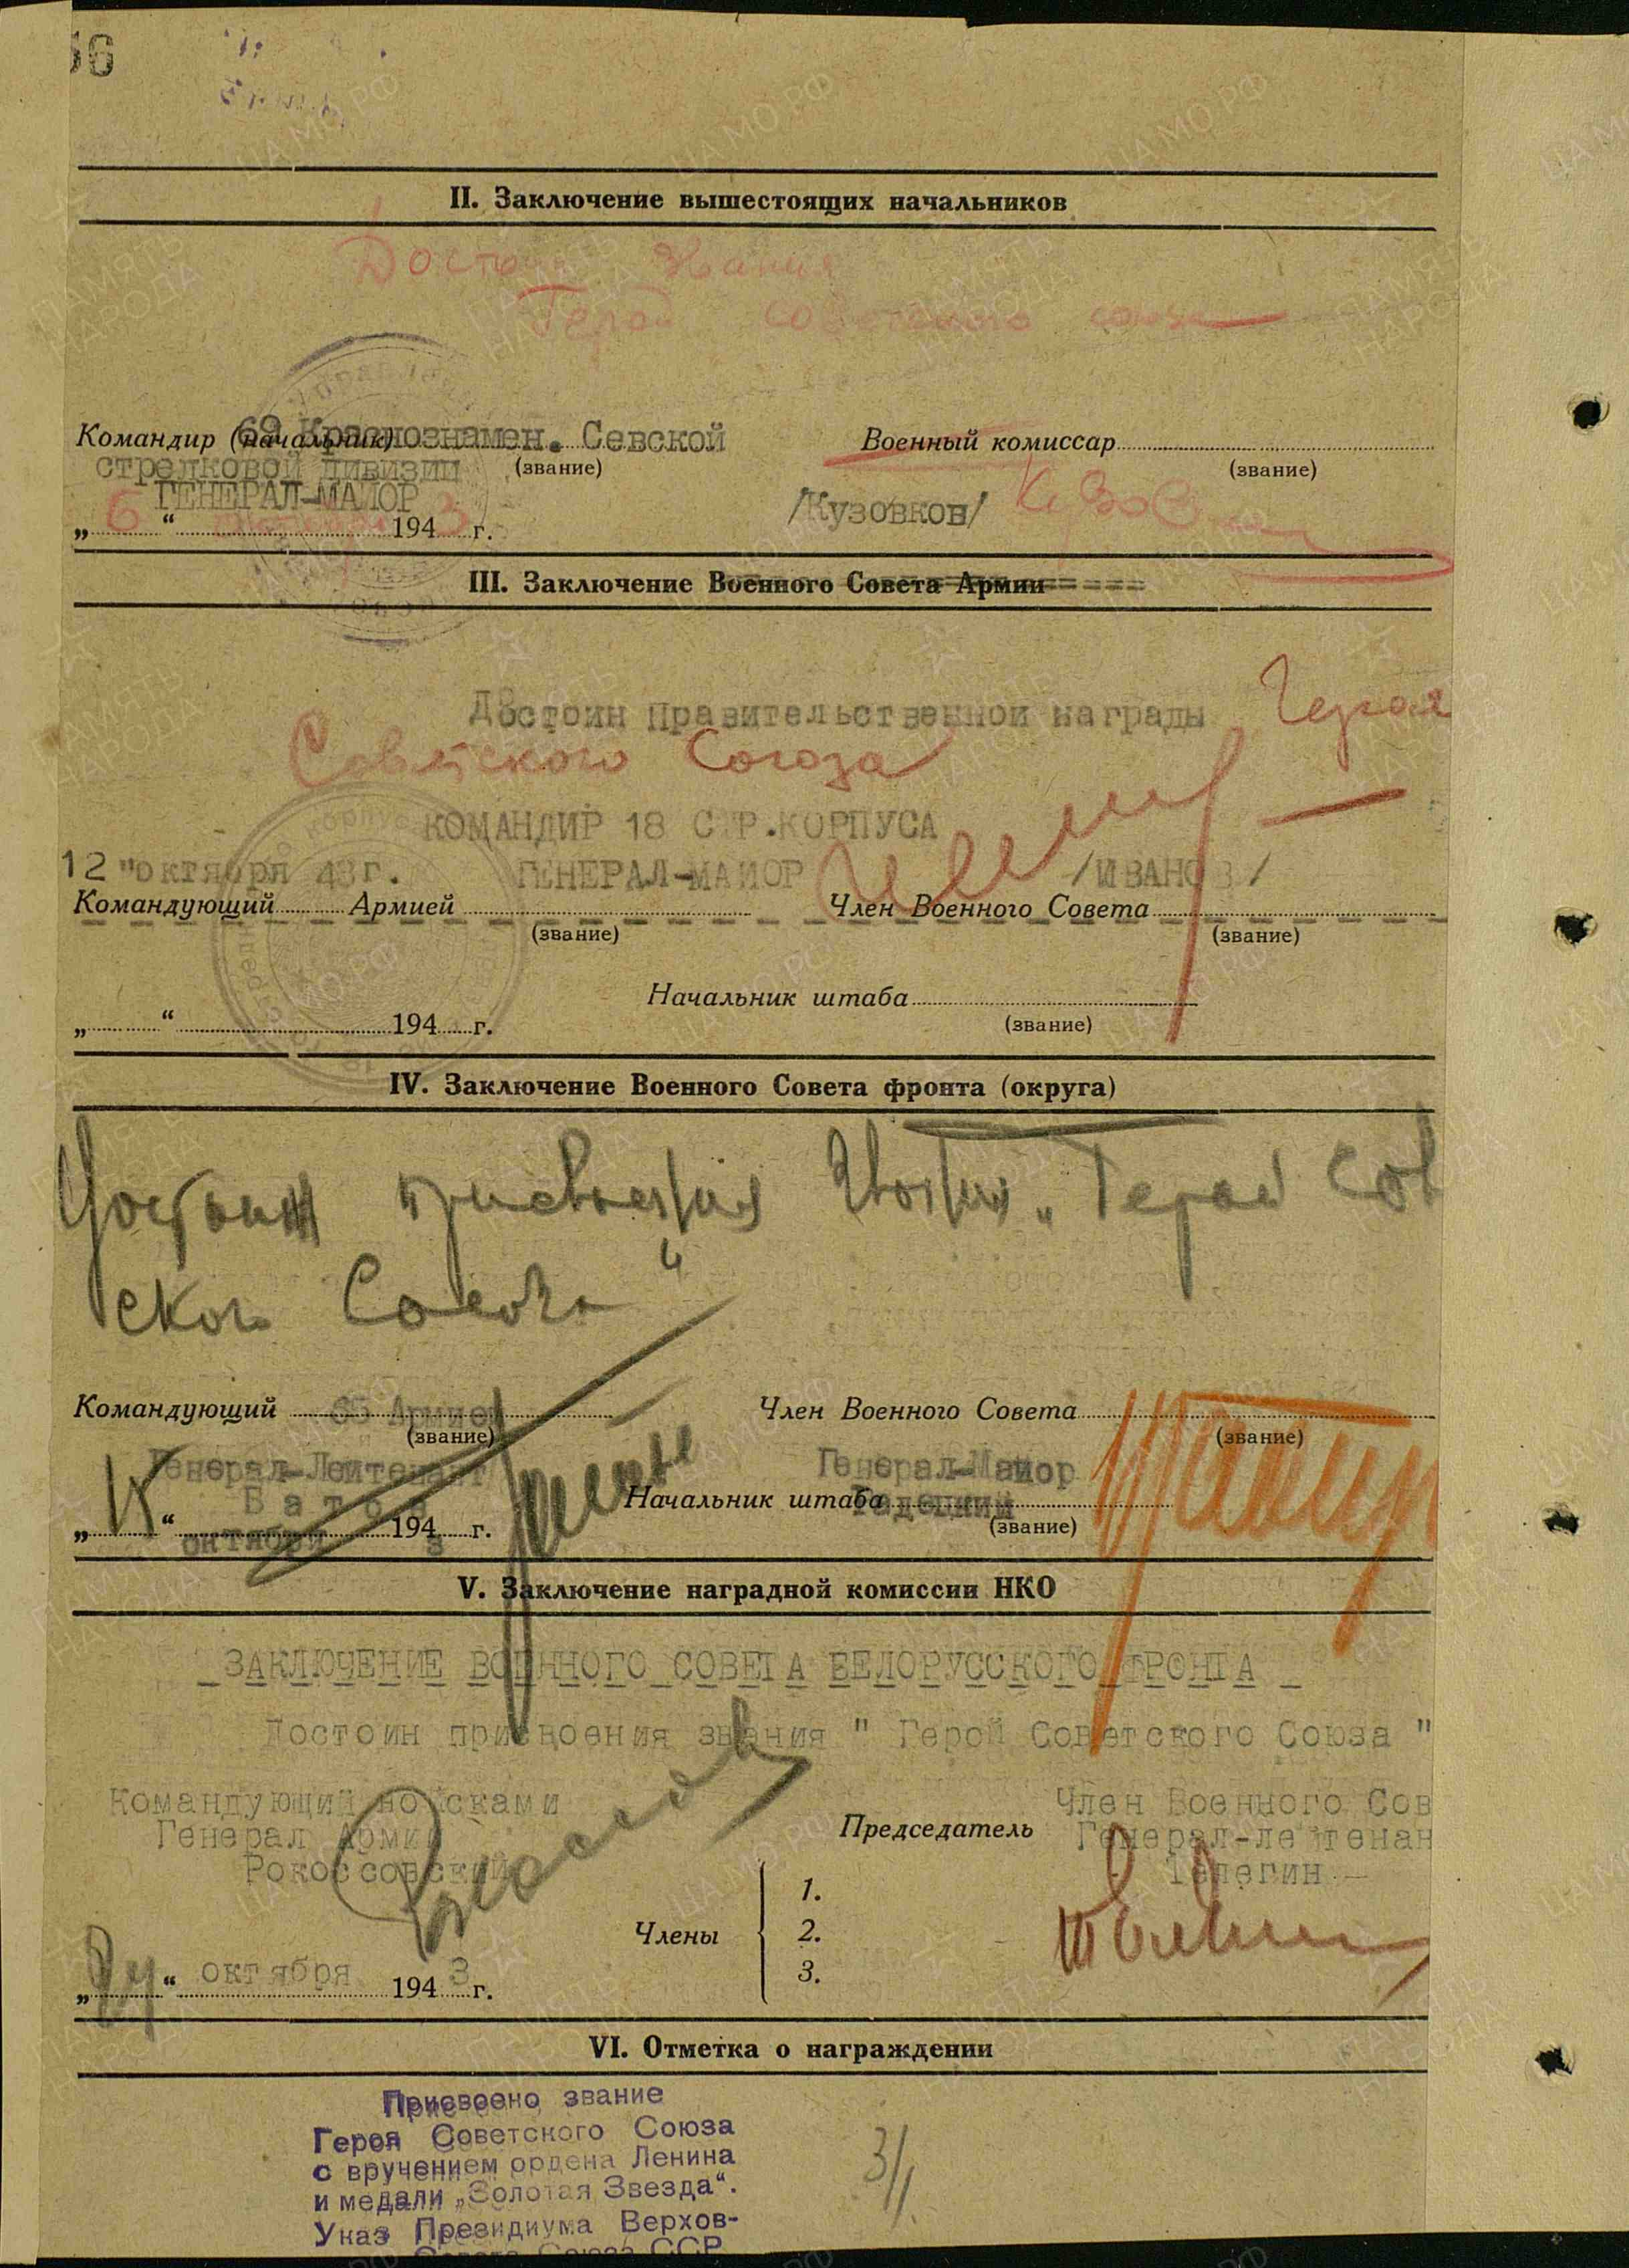 56
II. Заключение вышестоящих начальников
Звания
Герой советского союза
69 Краснознамен. Севской
Командир (начальник)
Военный комиссар
стрелковой дивизии
(звание)
(звание)
ГЕНЕРАЛ-МАЙОР
/Кузовков/
„ 6 “ 194 3 г.
III. Заключение Военного Совета Армии
Достоин правительственной награды Героя
Советского Союза
КОМАНДИР 18 СТР.КОРПУСА
12 "октября 43г. ГЕНЕРАЛ-МАЙОР /ИВАНОВ/
Командующий Армией Член Военного Совета
(звание) (звание)
Начальник штаба
„ “ 194 г. (звание)
IV. Заключение Военного Совета фронта (округа)
Достоин присвоения звания „Герой Сов
ского Союза“
Командующий 65 Армией Член Военного Совета
(звание) (звание)
Генерал-Лейтенант Генерал-Майор
Батов Начальник штаба Радецкий
„ “ октября 194 3 г. (звание)
V. Заключение наградной комиссии НКО
ЗАКЛЮЧЕНИЕ ВОЕННОГО СОВЕТА БЕЛОРУССКОГО ФРОНТА
Достоин присвоения звания " Герой Советского Союза "
Командующий войсками Член Военного Сов
Генерал Армии Председатель Генерал-лейтенан
Рокоссовский Телегин
1.
Члены 2.
3.
„ “ октября 194 3 г.
VI. Отметка о награждении
Присвоено звание
Героя Советского Союза
с вручением ордена Ленина
и медали „Золотая Звезда“.
Указ Президиума Верхов-
Совета Союза ССР
3/1